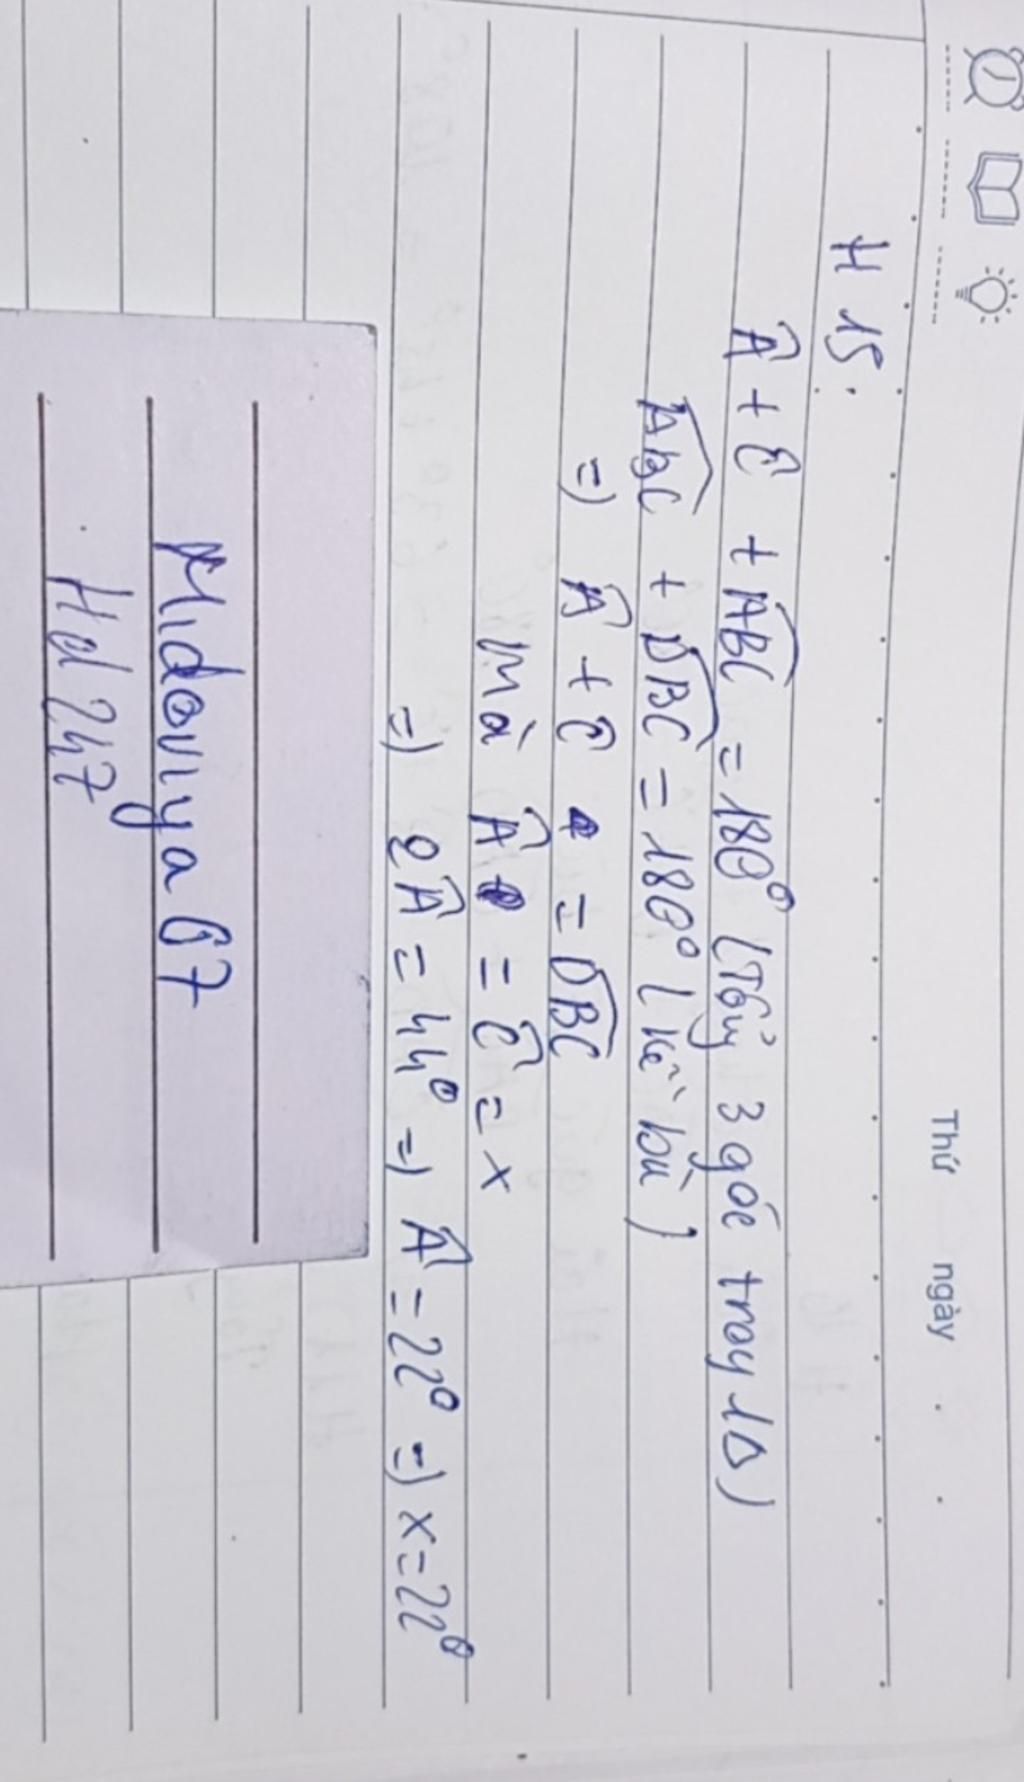 Thứ ngày
H 15:
Â + Ĉ + ABC = 180° (Tổng 3 góc trong 1Δ)
ABC + DBC = 180° (kề bù)
=) Â + Ĉ = DBC
Mà Â = Ĉ = x
=) 2Â = 44° =) Â = 22° =) x = 22°
Midoriya67
Hd247